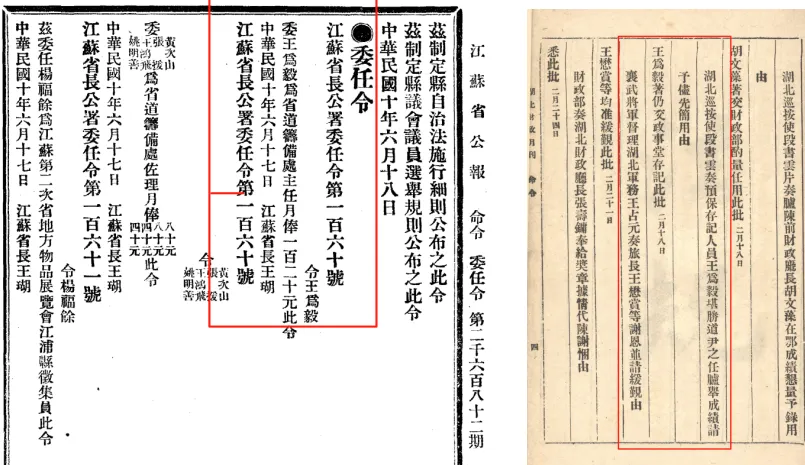 江蘇省公報 命令 委任令 第二千六百八十二期
茲制定縣自治法施行細則公布之此令
茲制定縣議會議員選舉規則公布之此令
中華民國十年六月十八日
●委任令
江蘇省長公署委任令第一百六十號
令王爲毅
委王爲毅爲省道籌備處主任月俸一百二十元此令
中華民國十年六月十七日 江蘇省長王瑚
江蘇省長公署委任令第一百六十號
令黃次山張援王鴻飛姚明善
委黃次山張援王鴻飛姚明善爲省道籌備處佐理月俸八十元八十元四十元四十元此令
中華民國十年六月十七日 江蘇省長王瑚
江蘇省長公署委任令第一百六十一號
令楊福餘
茲委任楊福餘爲江蘇第二次省地方物品展覽會江浦縣徵集員此令
中華民國十年六月十七日 江蘇省長王瑚
湖北巡按使段書雲片奏臚陳前財政廳長胡文藻在鄂成績懇量予錄用
由
胡文藻著交財政部酌量任用此批 二月十八日
湖北巡按使段書雲奏預保存記人員王爲毅堪勝道尹之任臚舉成績請
予儘先簡用由
王爲毅著仍交政事堂存記此批 二月十八日
襄武將軍督理湖北軍務王占元奏旅長王懋賞等謝恩並請緩覲由
王懋賞等均准緩覲此批 二月二十一日
財政部奏湖北財政廳長張壽鏞奉給獎章據情代陳謝悃由
悉此批 二月二十四日
湖北財政月刊 命令
四